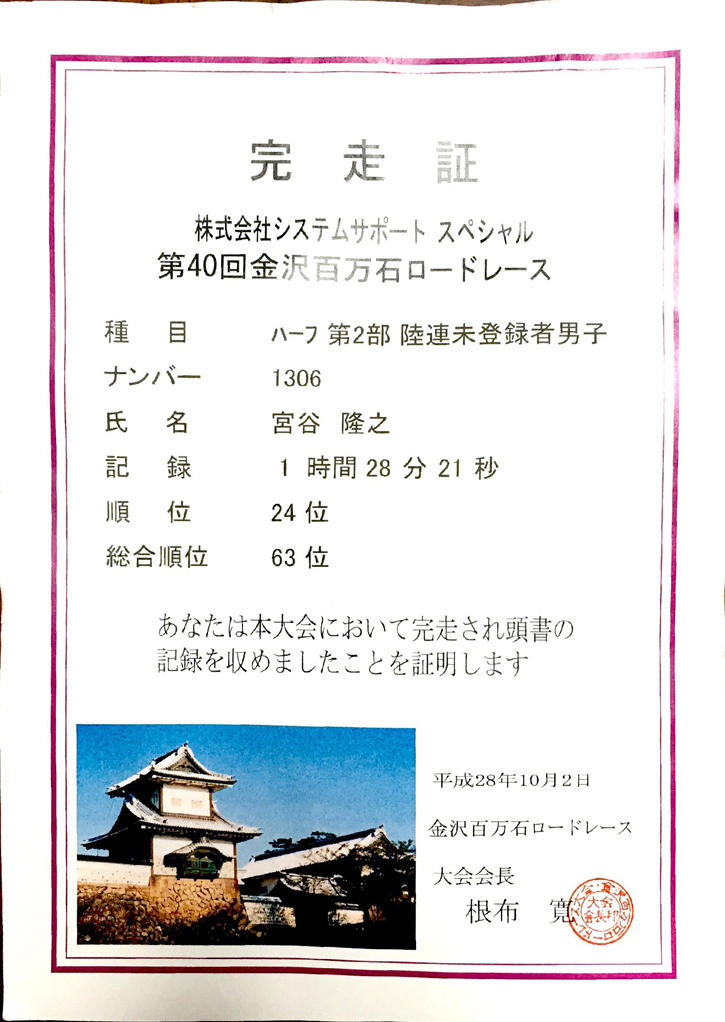 完走証
株式会社システムサポート スペシャル
第40回金沢百万石ロードレース
種目 ハーフ 第2部 陸連未登録者男子
ナンバー 1306
氏名 宮谷 隆之
記録 1 時間 28 分 21 秒
順位 24 位
総合順位 63 位
あなたは本大会において完走され頭書の
記録を収めましたことを証明します
平成28年10月2日
金沢百万石ロードレース
大会会長
根布 寛
大会
会長印